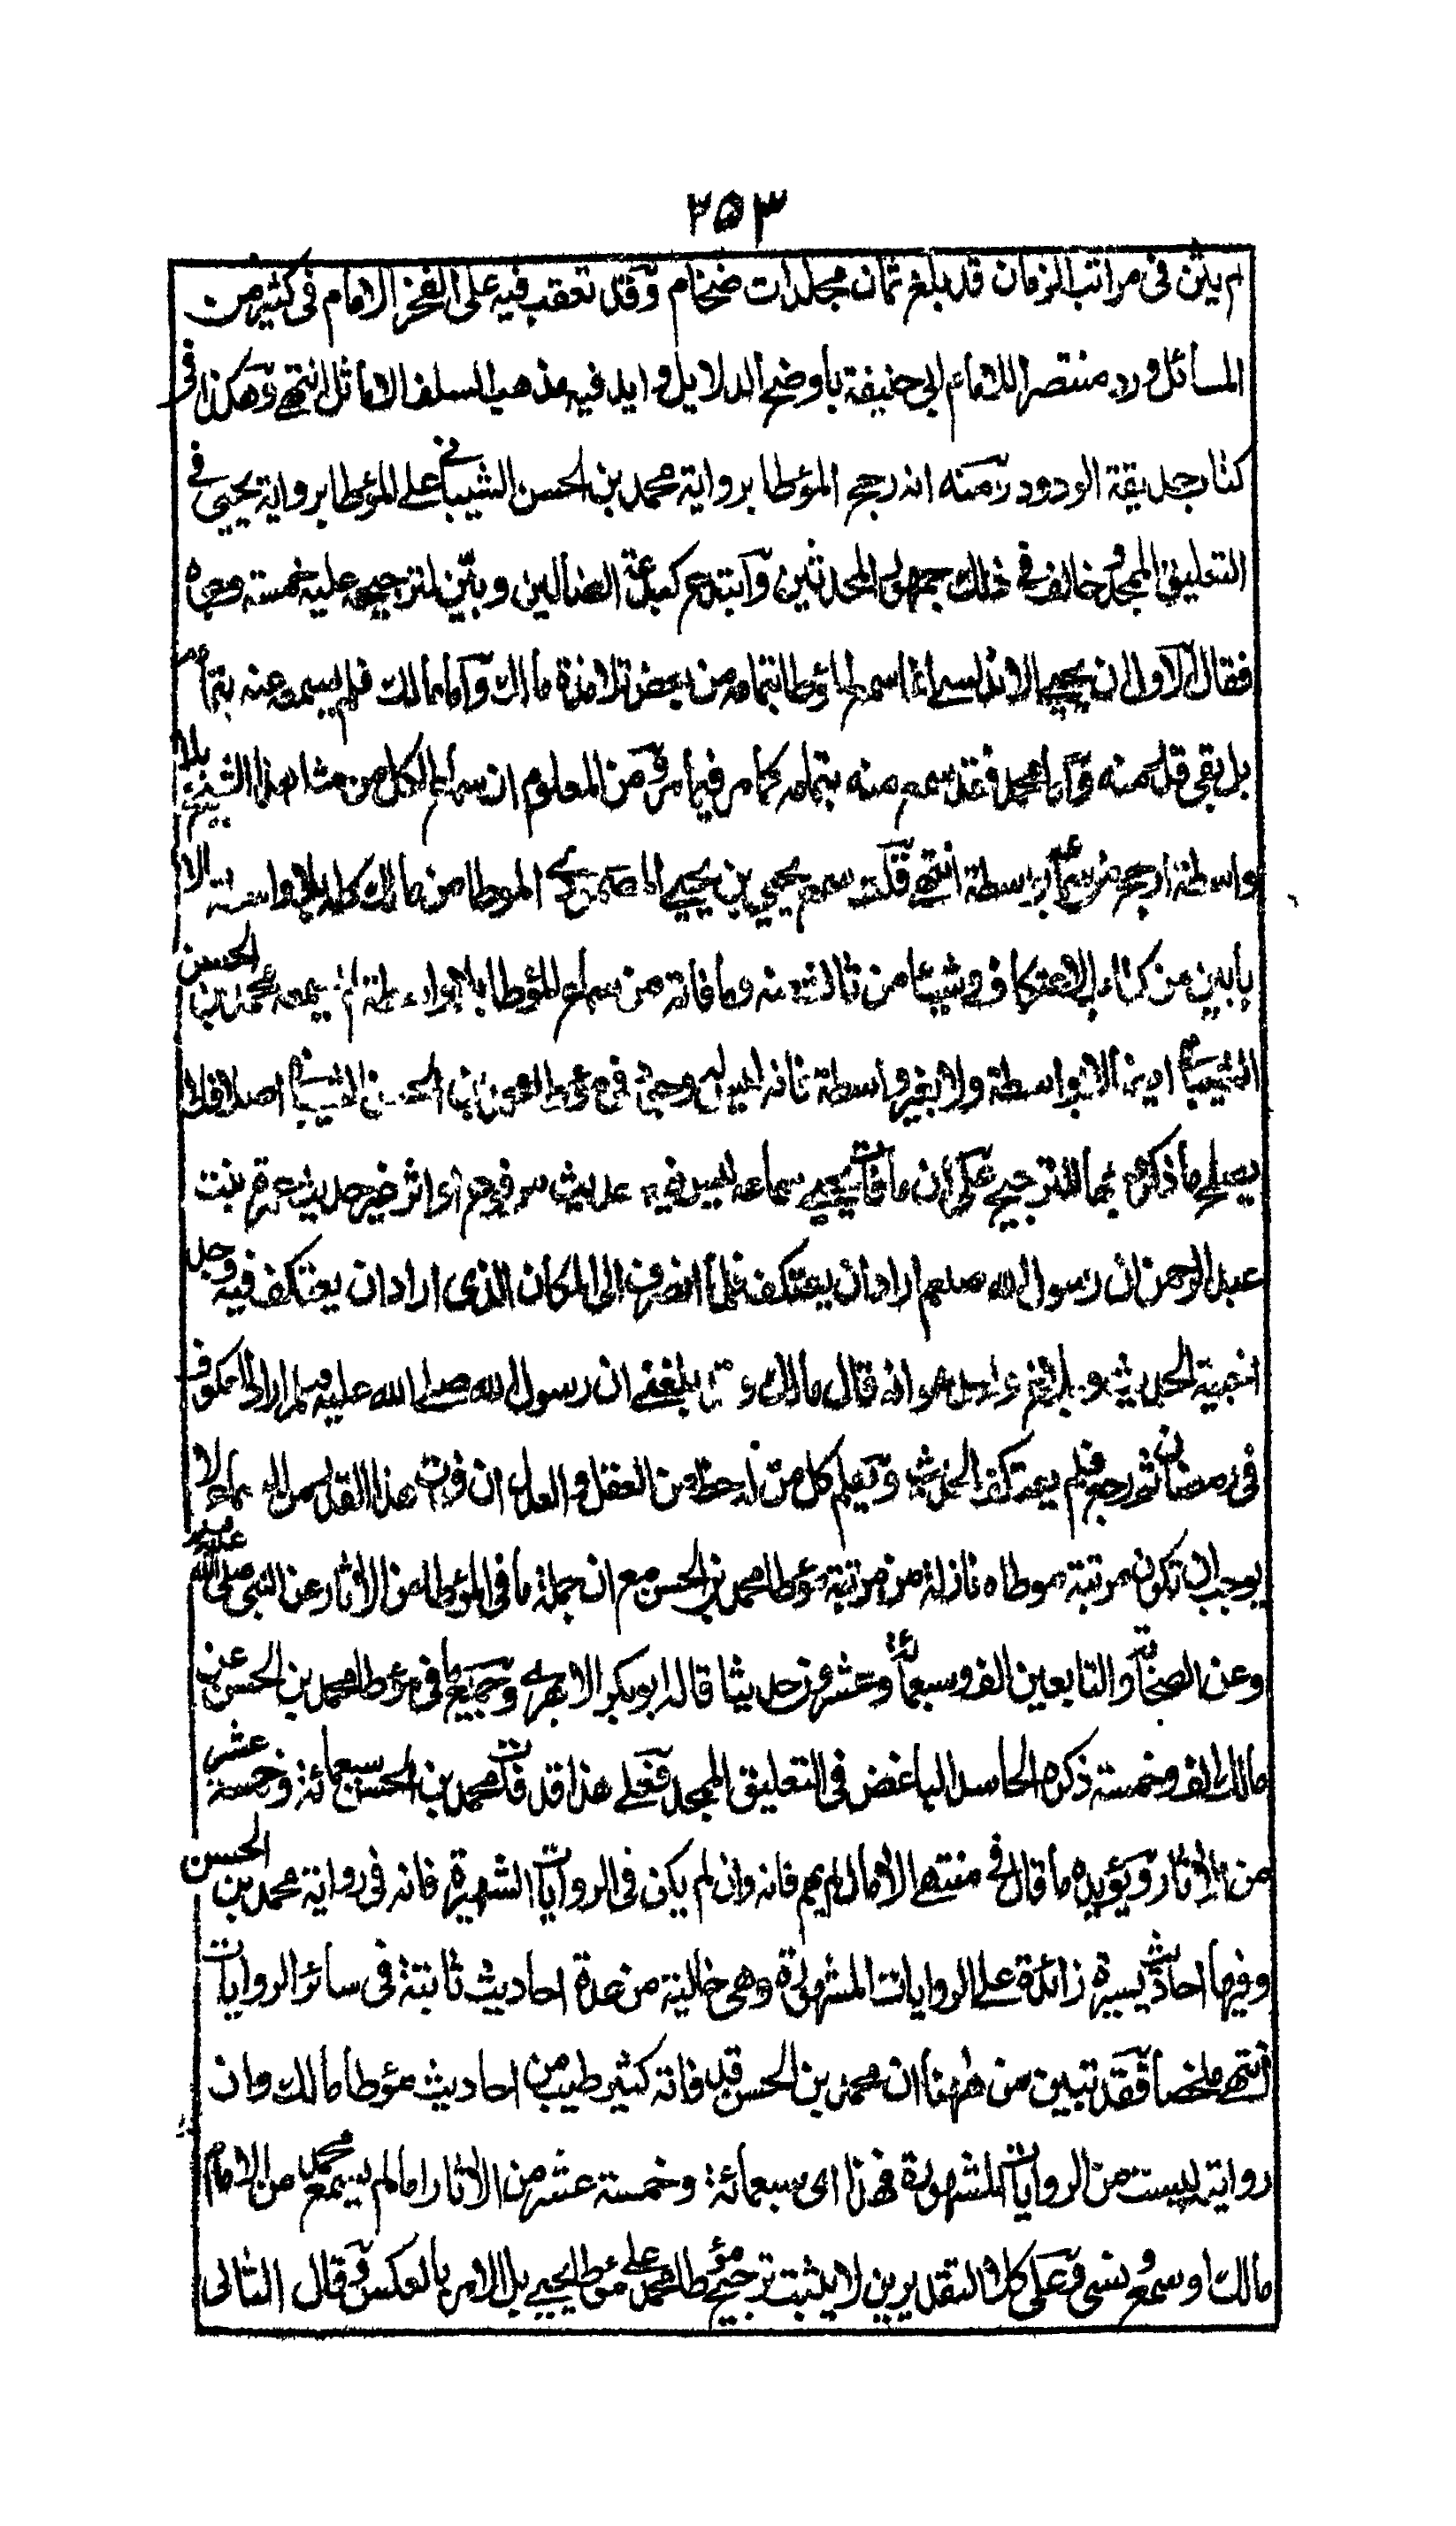 ٢٥٣
لم يثن في مراتب الزمان قد بلغ ثمان مجلدات ضخام وقد تعقب فيه على الفخر الامام في كثير من
المسائل ورد منتصرا للامام ابي حنيفة باوضح الدلايل وايد فيه مذهب السلف الاماثل انتهى وهكذا في
كتاب حديقة الورود ومنه انه رجح المؤطا برواية محمد بن الحسن الشيباني على المؤطا برواية يحيى في
التعليق الممجد وخالف في ذلك جمهور المحدثين وابتدع كبدعة الضالين وبين لترجيحه عليه خمسة وجوه
فقال الاول ان يحيى الاندلسي انما سمع المؤطا بتمامه من بعض تلامذة مالك واما مالك فلم يسمعه عنه بتمامه
بل بقي قدر منه واما محمد فقد سمع منه بتمامه كما مر فيما مر ومن المعلوم ان سماع الكل من مثل هذا الشيخ بلا
واسطة ارجح من سماعه بواسطة انتهى قلت سمع يحيى بن يحيى المصمودي الموطا من مالك كله بلا واسطة الا
بابين من كتاب الاعتكاف وشيئا من ثالث منه وما فاته من سماع المؤطا بلا واسطة لم يسمعه محمد بن الحسن
الشيباني ايضا لا بواسطة ولا بغير واسطة فانه ليس بموجود في موطا محمد بن الحسن الشيباني اصلا فلا
يصلح ما ذكره بها للترجيح على ان ما فات يحيى سماعه ليس فيه حديث مرفوع او اثر غير حديث عمرة بنت
عبد الرحمن ان رسول الله صلعم اراد ان يعتكف فلما انصرف الى المكان الذي اراد ان يعتكف فيه وجد
اخبية الحديث وبلاغ واحد هو انه قال مالك وقد بلغني ان رسول الله صلى الله عليه وسلم اراد العكوف
في رمضان ثم رجع فلم يعتكف الحديث ويعلم كل من له حظ من العقل والعدل ان فوت هذا القدر من السماع لا
يوجب ان تكون مرتبة موطاه نازلة من مرتبة مؤطا محمد بن الحسن مع ان جملة ما في المؤطا من الاثار عن النبي صلى الله عليه وسلم
وعن الصحابة والتابعين الف وسبعمائة وعشرون حديثا قاله ابو بكر الابهري وجميع ما في مؤطا محمد بن الحسن عن
مالك الف وخمسة ذكره الحاسد الباغض في التعليق الممجد فعلى هذا قد فات محمد بن الحسن سبعمائة وخمسة عشر
من الاثار ويؤيده ما قال في منتهى الامال لم يهم فانه وان لم يكن في الروايات الشهيرة فانه في رواية محمد بن الحسن
وفيها احاديث يسيرة زائدة على الروايات المشهورة وهي خالية من عدة احاديث ثابتة في سائر الروايات
انتهى ملخصا فقد تبين من ههنا ان محمد بن الحسن قد فاته كثير طيب من احاديث مؤطا مالك وان
روايته ليست من الروايات المشهورة فهذا اى سبعمائة وخمسة عشر من الاثار اما لم يسمع محمد من الامام
مالك او سمع ونسي وعلى كلا التقديرين لا يثبت ترجيح مؤطا محمد على مؤطا يحيى بل الامر بالعكس وقال الثاني